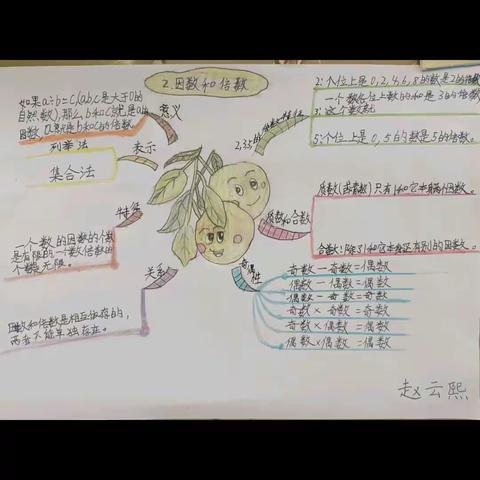 2.因数和倍数
如果a÷b=c(a,b,c是大于0的
自然数),那么,b和c就是a的
因数,a就是b和c的倍数。
意义
列举法
集合法
表示
特征
一个数的因数的个数
是有限的一个数倍数的
个数无限。
关系
因数和倍数是相互依存的,
两者不能单独存在。
2,3,5的倍数特征
2:个位上是0,2,4,6,8的数是2的倍数
一个数各位上数的和是3的倍数
3:这个数就
5:个位上是0,5的数是5的倍数。
质数和合数
质数(或素数)只有1和它本身两个因数。
合数:除了1和它本身还有别的因数。
奇偶性
奇数-奇数=偶数
偶数-偶数=偶数
偶数-奇数=奇数
奇数×奇数=奇数
奇数×偶数=偶数
偶数×偶数=偶数
赵云熙